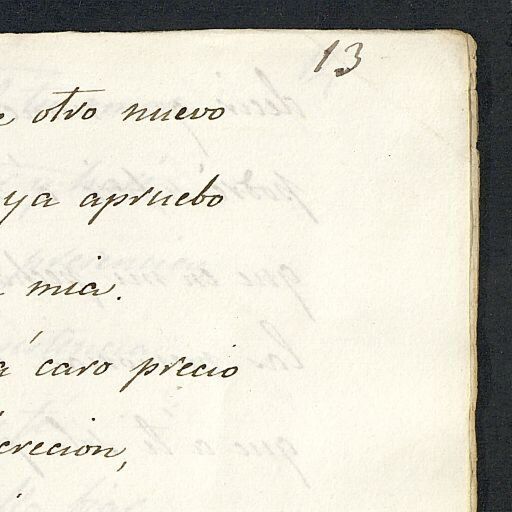 13
otro nuevo
ya apruebo
mia.
á caro precio
crecion,